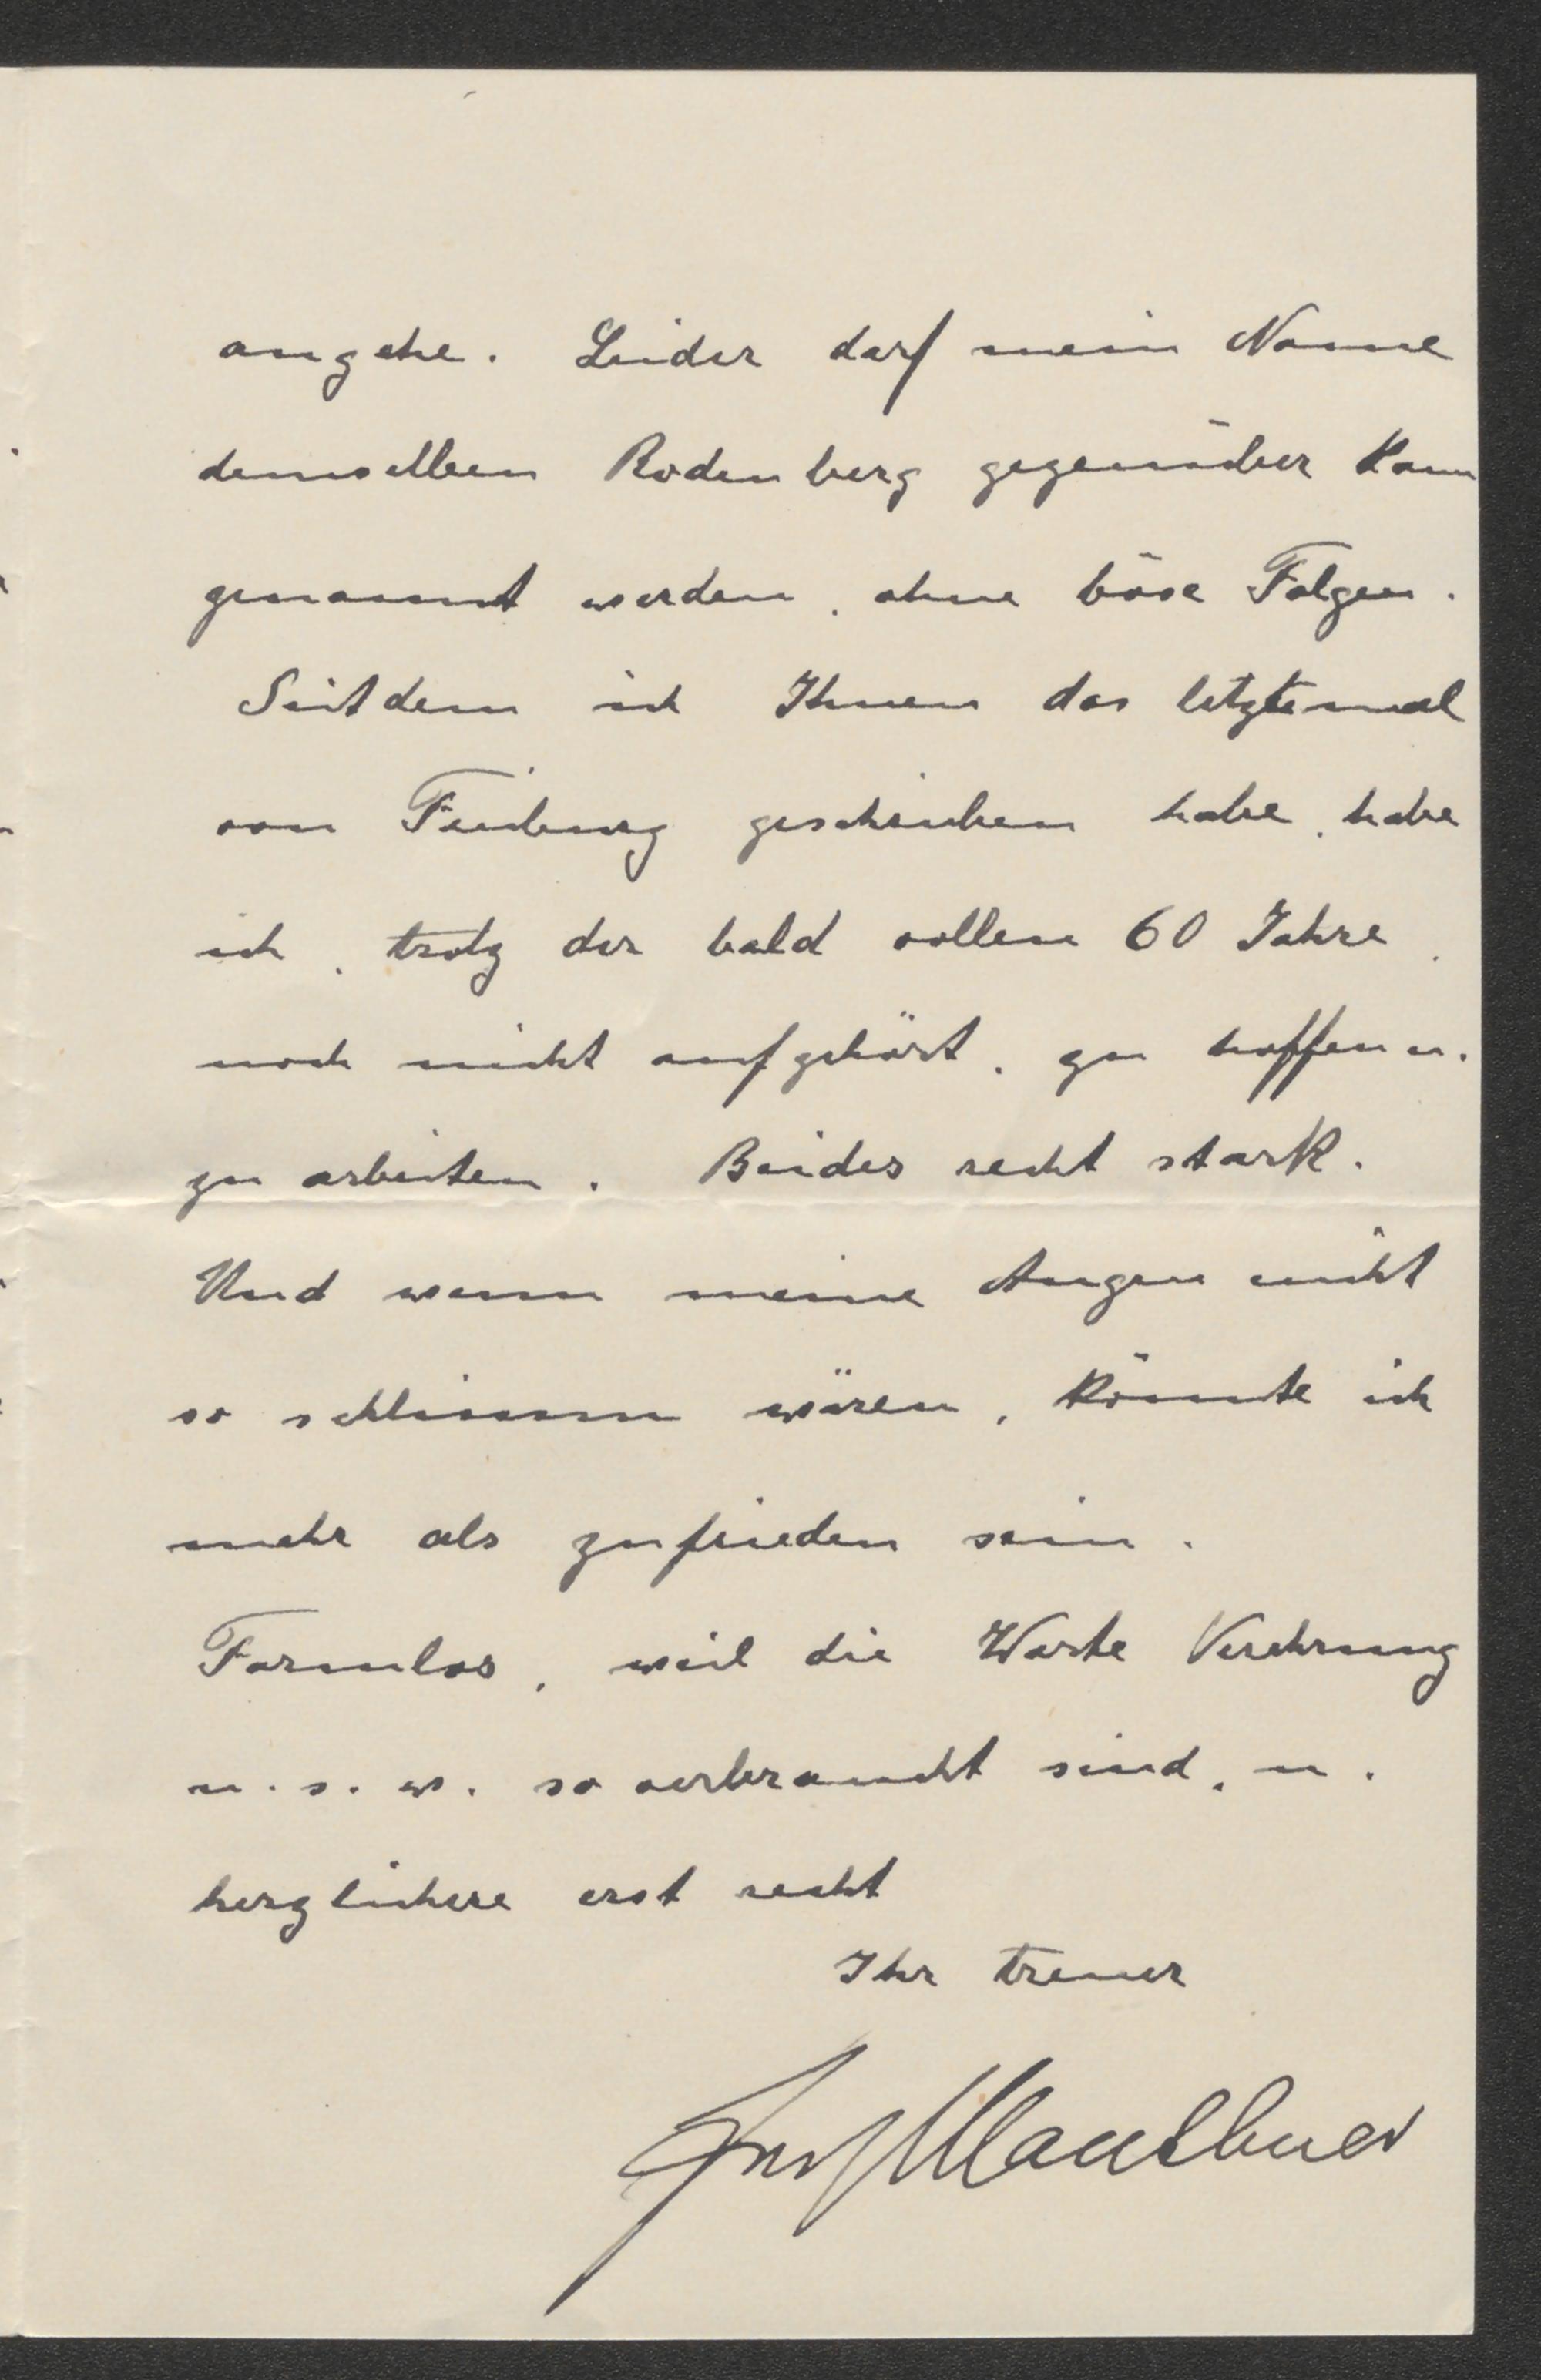 angehe. Leider darf mein Name
demselben Rodenberg gegenüber kaum
genannt werden, ohne böse Folgen.
Seitdem ich Ihnen das letztemal
von Freiburg geschrieben habe, habe
ich, trotz der bald vollen 60 Jahre,
noch nicht aufgehört, zu hoffen u.
zu arbeiten. Beides recht stark.
Und wenn meine Augen nicht
so schlimm wären, könnte ich
mehr als zufrieden sein.
Formlos, weil die Worte Verehrung
u. s. w. so verbraucht sind, u.
herzlichere erst recht
Ihr treuer
Fritz Mauthner